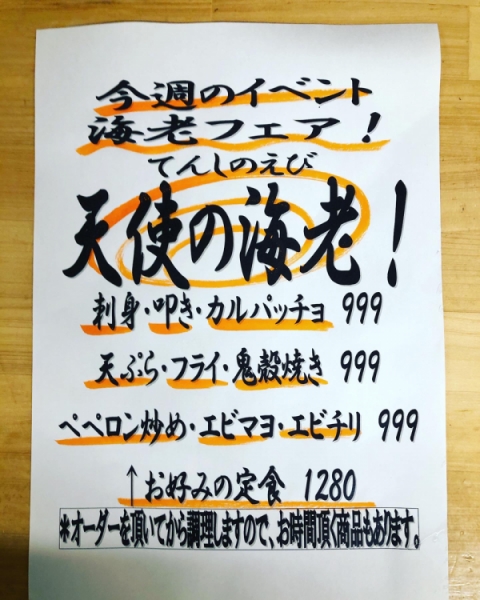 今週のイベント
海老フェア！
てんしのえび
天使の海老！
刺身・叩き・カルパッチョ 999
天ぷら・フライ・鬼殻焼き 999
ペペロン炒め・エビマヨ・エビチリ 999
↑お好みの定食 1280
＊オーダーを頂いてから調理しますので、お時間頂く商品もあります。